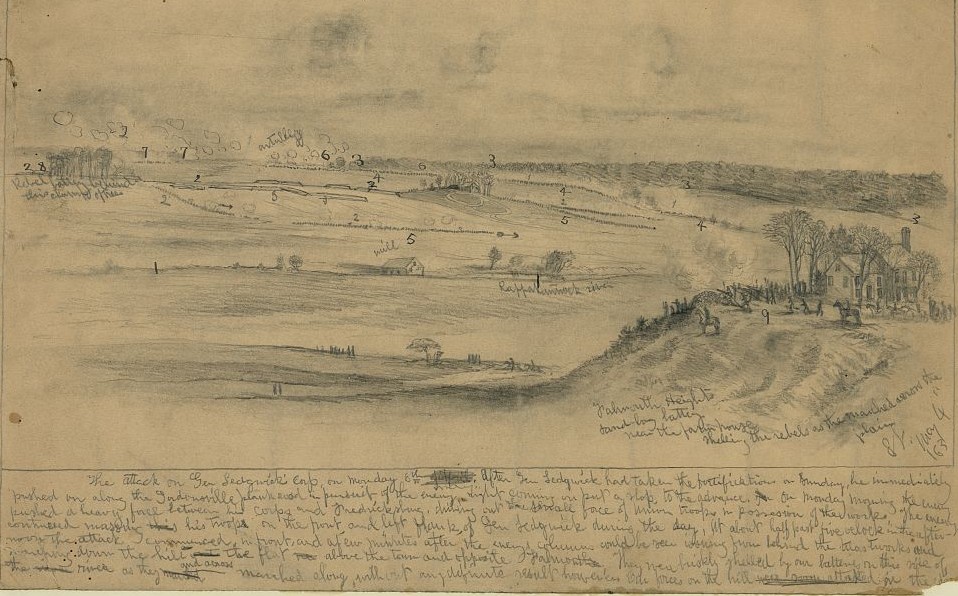 artillery
7 7 6 3 6 3
2 8 4 2 3
Rebel
2 2 5 4
2 5 4 3
mill 5
1 1
Rappahannock river
9
Falmouth Heights
Sand bag battery
near the farm house
shelling the rebels as they marched across the
plain
May 4
63
The attack on Gen Sedgwick's Corp, on monday After Gen Sedgwick had taken the fortifications on Sunday, he immediately
pushed on along the plankroad in pursuit of the enemy, night coming on put a stop to the advance. On monday morning the enemy
pushed a heavy force between his corps and Fredricksburg, driving out the small force of Union troops in possession of the works. The enemy
continued massing his troops on the front and left flank of Gen Sedgwick during the day. At about half past five oclock in the after-
noon the attack commenced in front, and a few minutes after the enemy's columns could be seen coming from behind the earthworks and
marching down the hill and across the flat above the town and opposite Falmouth. They were briskly shelled by our battery on this side of
the river as they marched along without any definite result however. Our forces on the hill on the